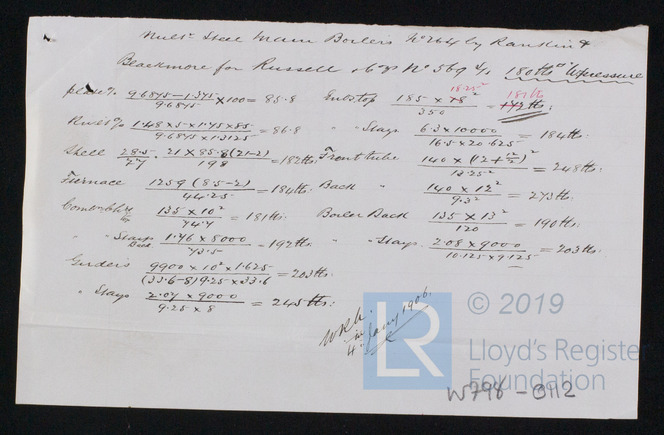 Mult. Steel Main Boilers No 264 by Rankin &
Blackmore for Russell & Co's No 569 4/5 180 lbs W pressure
plate % (9.6875 - 1.375)/9.6875 × 100 = 85.8 End stop 185 × 18² 18.25²/350 = 172 lbs: 181 lbs
Rivets % (1.48 × 5 × 1.75 × 85)/(9.6875 × 1.3125) = 86.8 " Stays (6.3 × 10000)/(16.5 × 20.625) = 184 lbs:
Shell 28.5/27 · 21 × 85.8 (21-2)/198 = 182 lbs: Front tube 140 × (12 + 5/2)²/13.25² = 248 lbs:
Furnace 1259 (8.5-2)/44.25 = 184 lbs: Back " 140 × 12²/9.3² = 273 lbs:
135 × 10²/74.4 = 181 lbs: Boiler Back 135 × 13²/120 = 190 lbs:
" Stays Back 1.76 × 8000/73.5 = 192 lbs: " Stays 2.08 × 9000/(10.125 × 9.125) = 203 lbs:
Girders 9900 × 10² × 1.625/((33.6-8) 9.25 × 33.6) = 203 lbs:
" Stays 2.07 × 9000/(9.25 × 8) = 245 lbs:
4 Jany 1906.
© 2019
LR
Lloyd's Register
Foundation
W798 - 0112